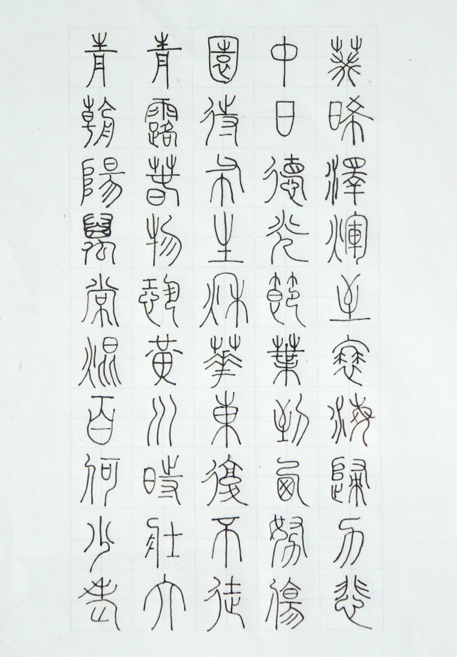 青青園中葵
朝露待日晞
陽春布德澤
萬物生光煇
常恐秋節至
焜黃華葉衰
百川東到海
何時復西歸
少壯不努力
老大徒傷悲